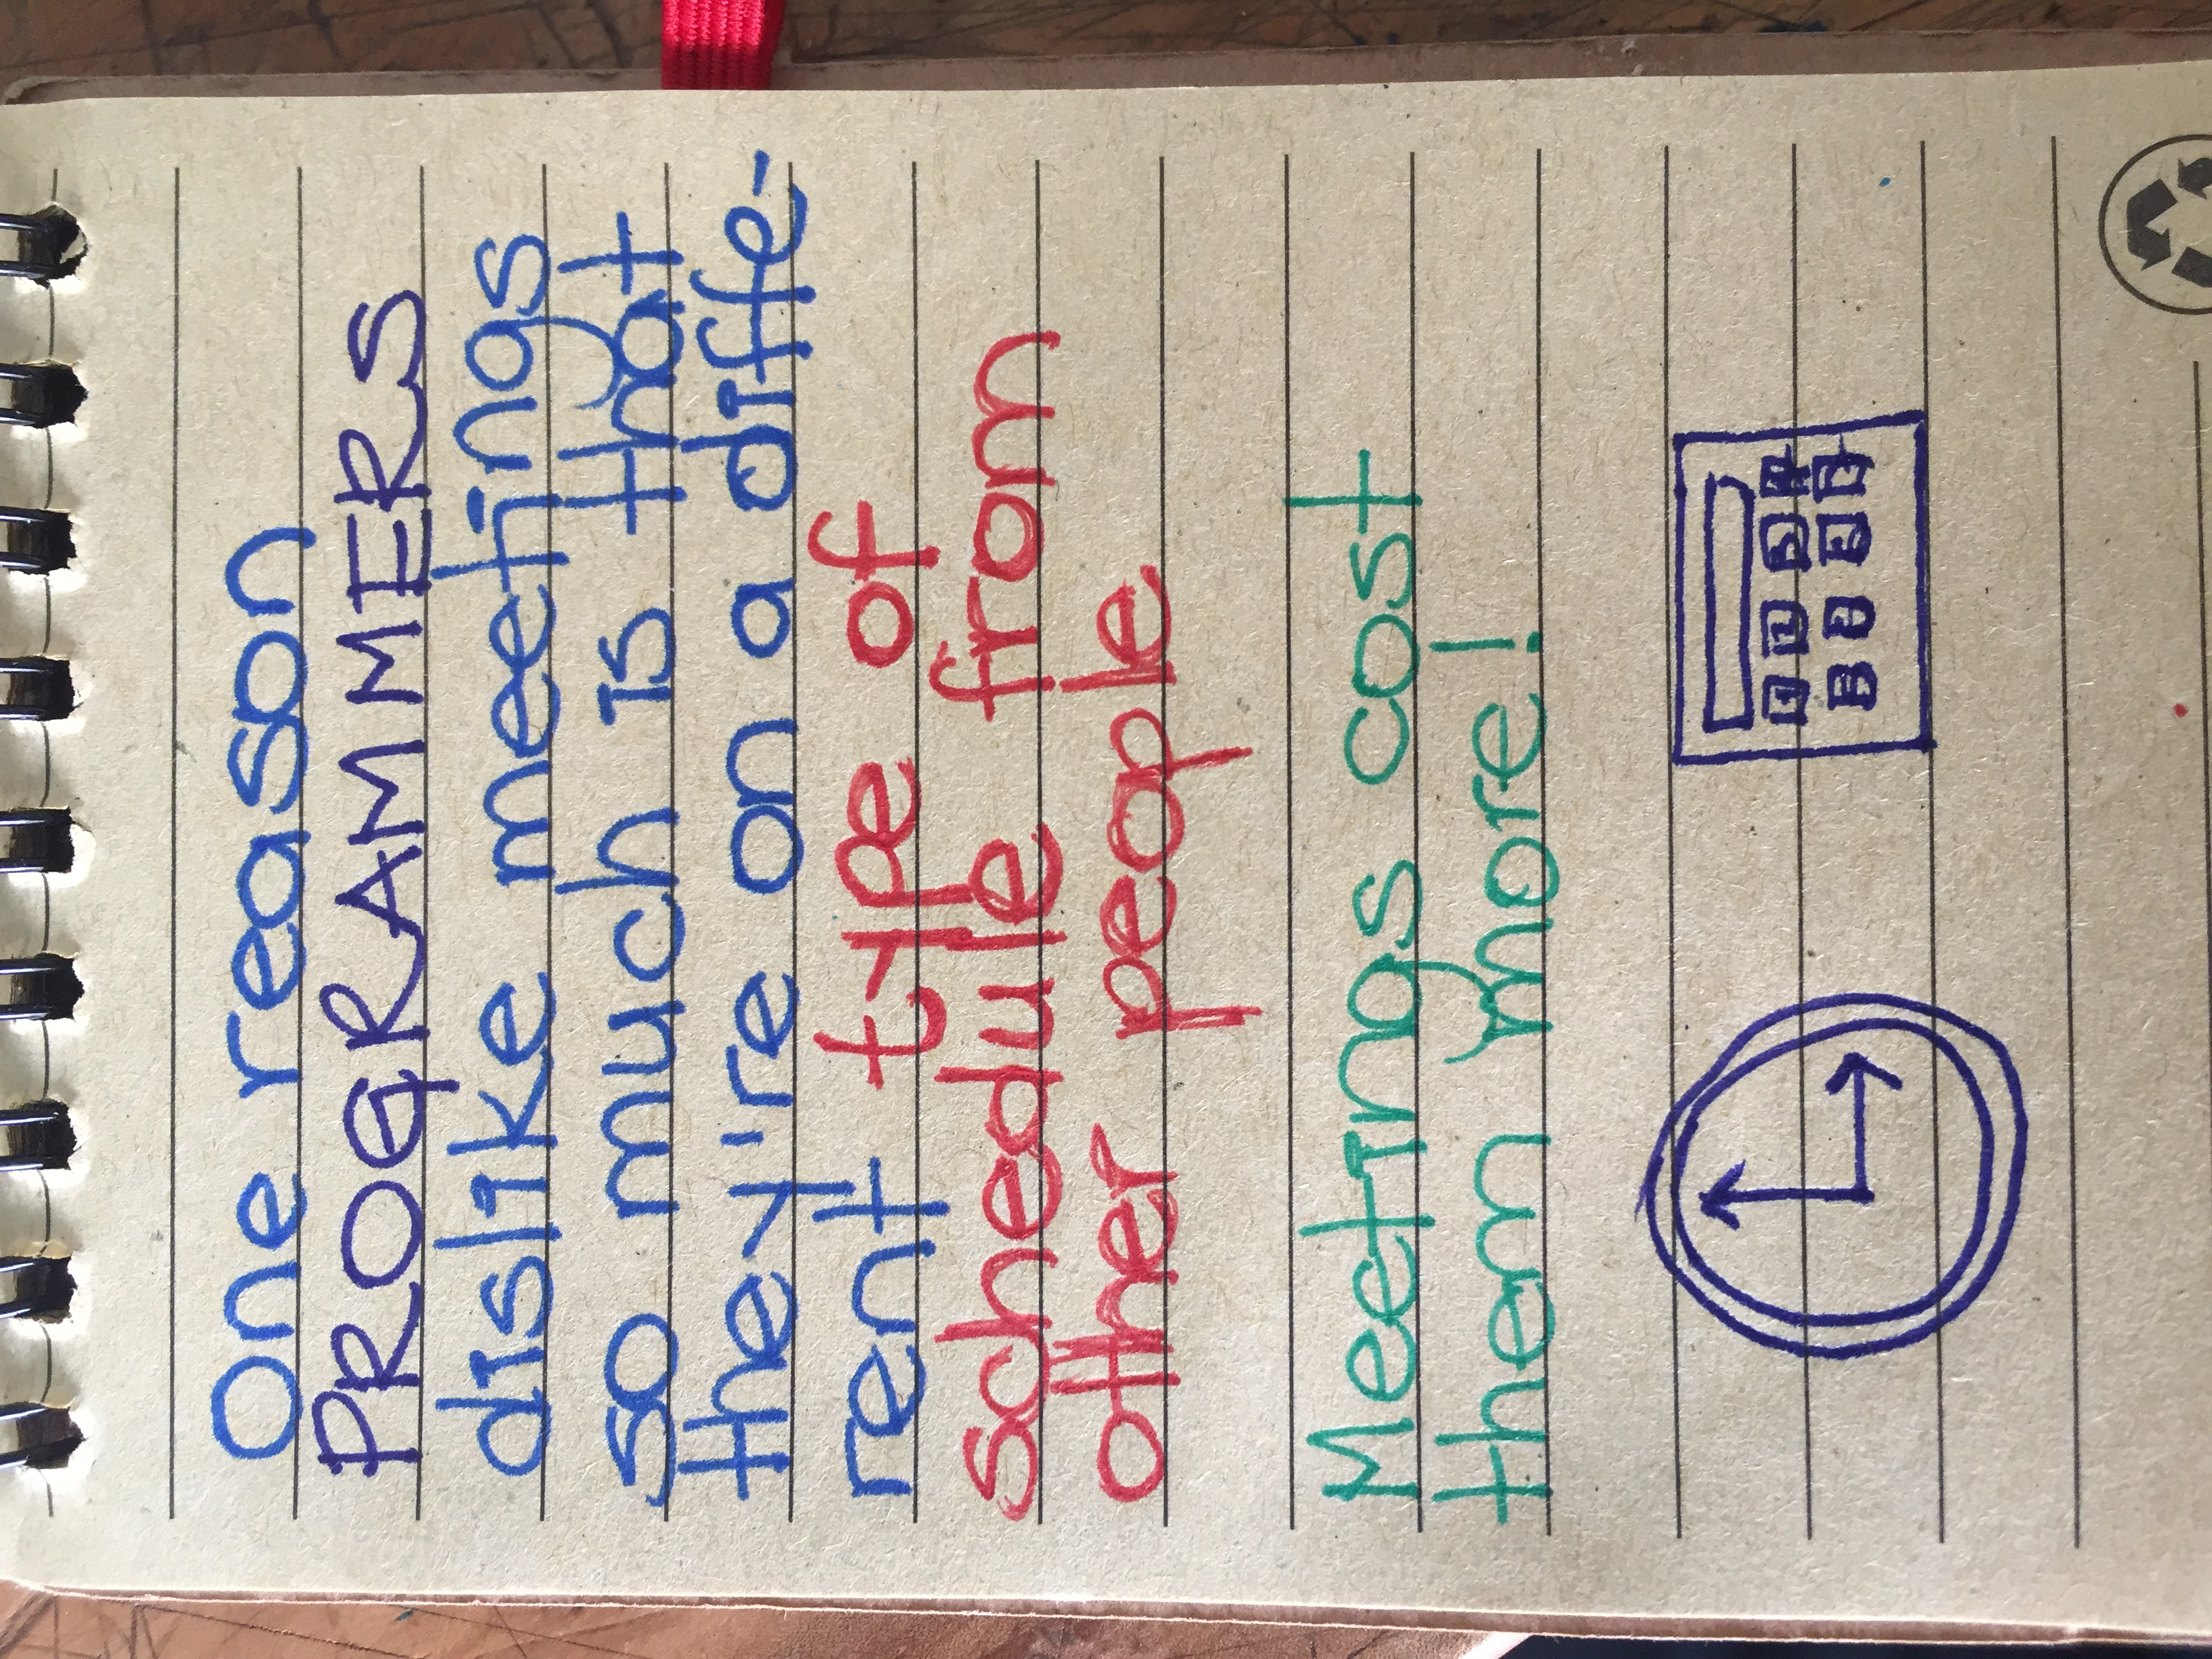 One reason
PROGRAMMERS
dislike meetings
so much is that
they're on a diffe-
rent type of
schedule from
other people
Meetings cost
them more!
1 2 3 4